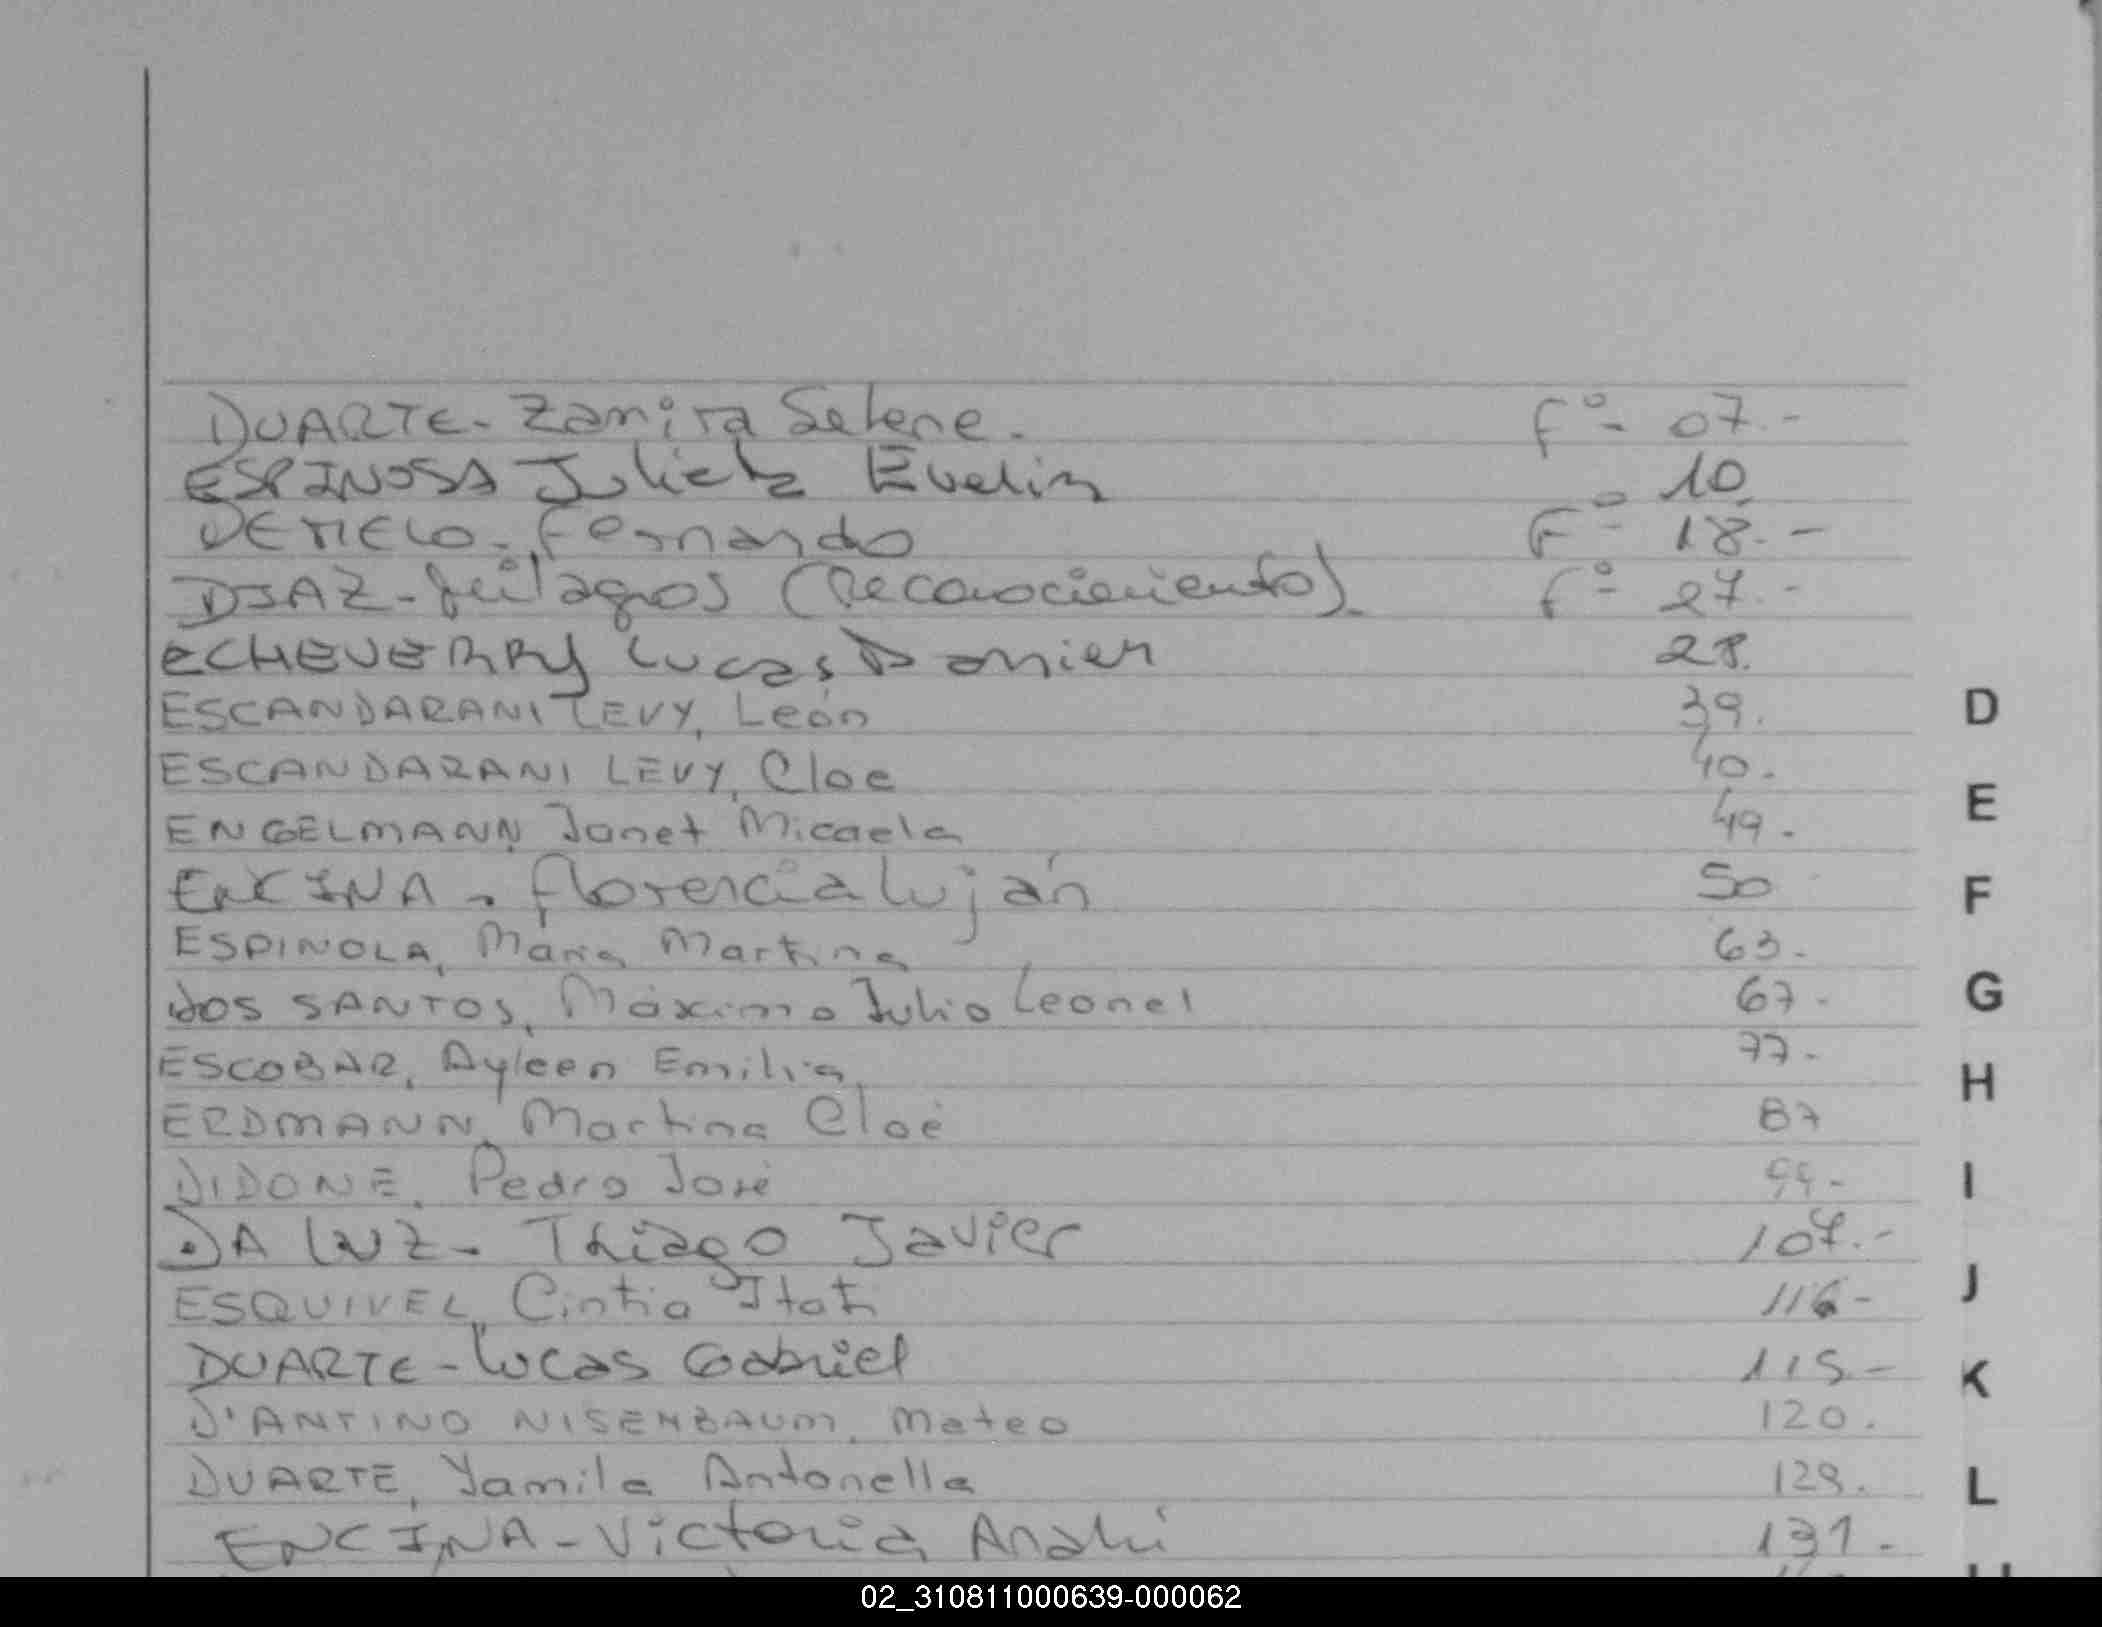 DUARTE - Zamira Selene. Fº 07.-
ESPINOSA Julieta Evelin 10
DEMELO - Fernando Fº 18.-
DIAZ - Milagros (Reconocimiento). Fº 27.-
ECHEVERRY Lucas Damien 28.
ESCANDARANI LEVY, León 39.
ESCANDARANI LEVY, Cloe 40.
ENGELMANN, Janet Micaela 49.
ENCINA - Florencia Luján 50
ESPINOLA, María Martina 63.
dos SANTOS, Máximo Julio Leonel 67.
ESCOBAR, Ayleen Emilia 77.
ERDMANN, Martina Cloé 87
DIDONÉ, Pedro José 99.
DA LUZ - Thiago Javier 107.-
ESQUIVEL, Cintia Itatí 116-
DUARTE - Lucas Gabriel 115.-
D'ANTINO NISENBAUM, Mateo 120.
DUARTE, Yamila Antonella 129.
ENCINA - Victoria Anahí 131.
D
E
F
G
H
I
J
K
L
02_310811000639-000062